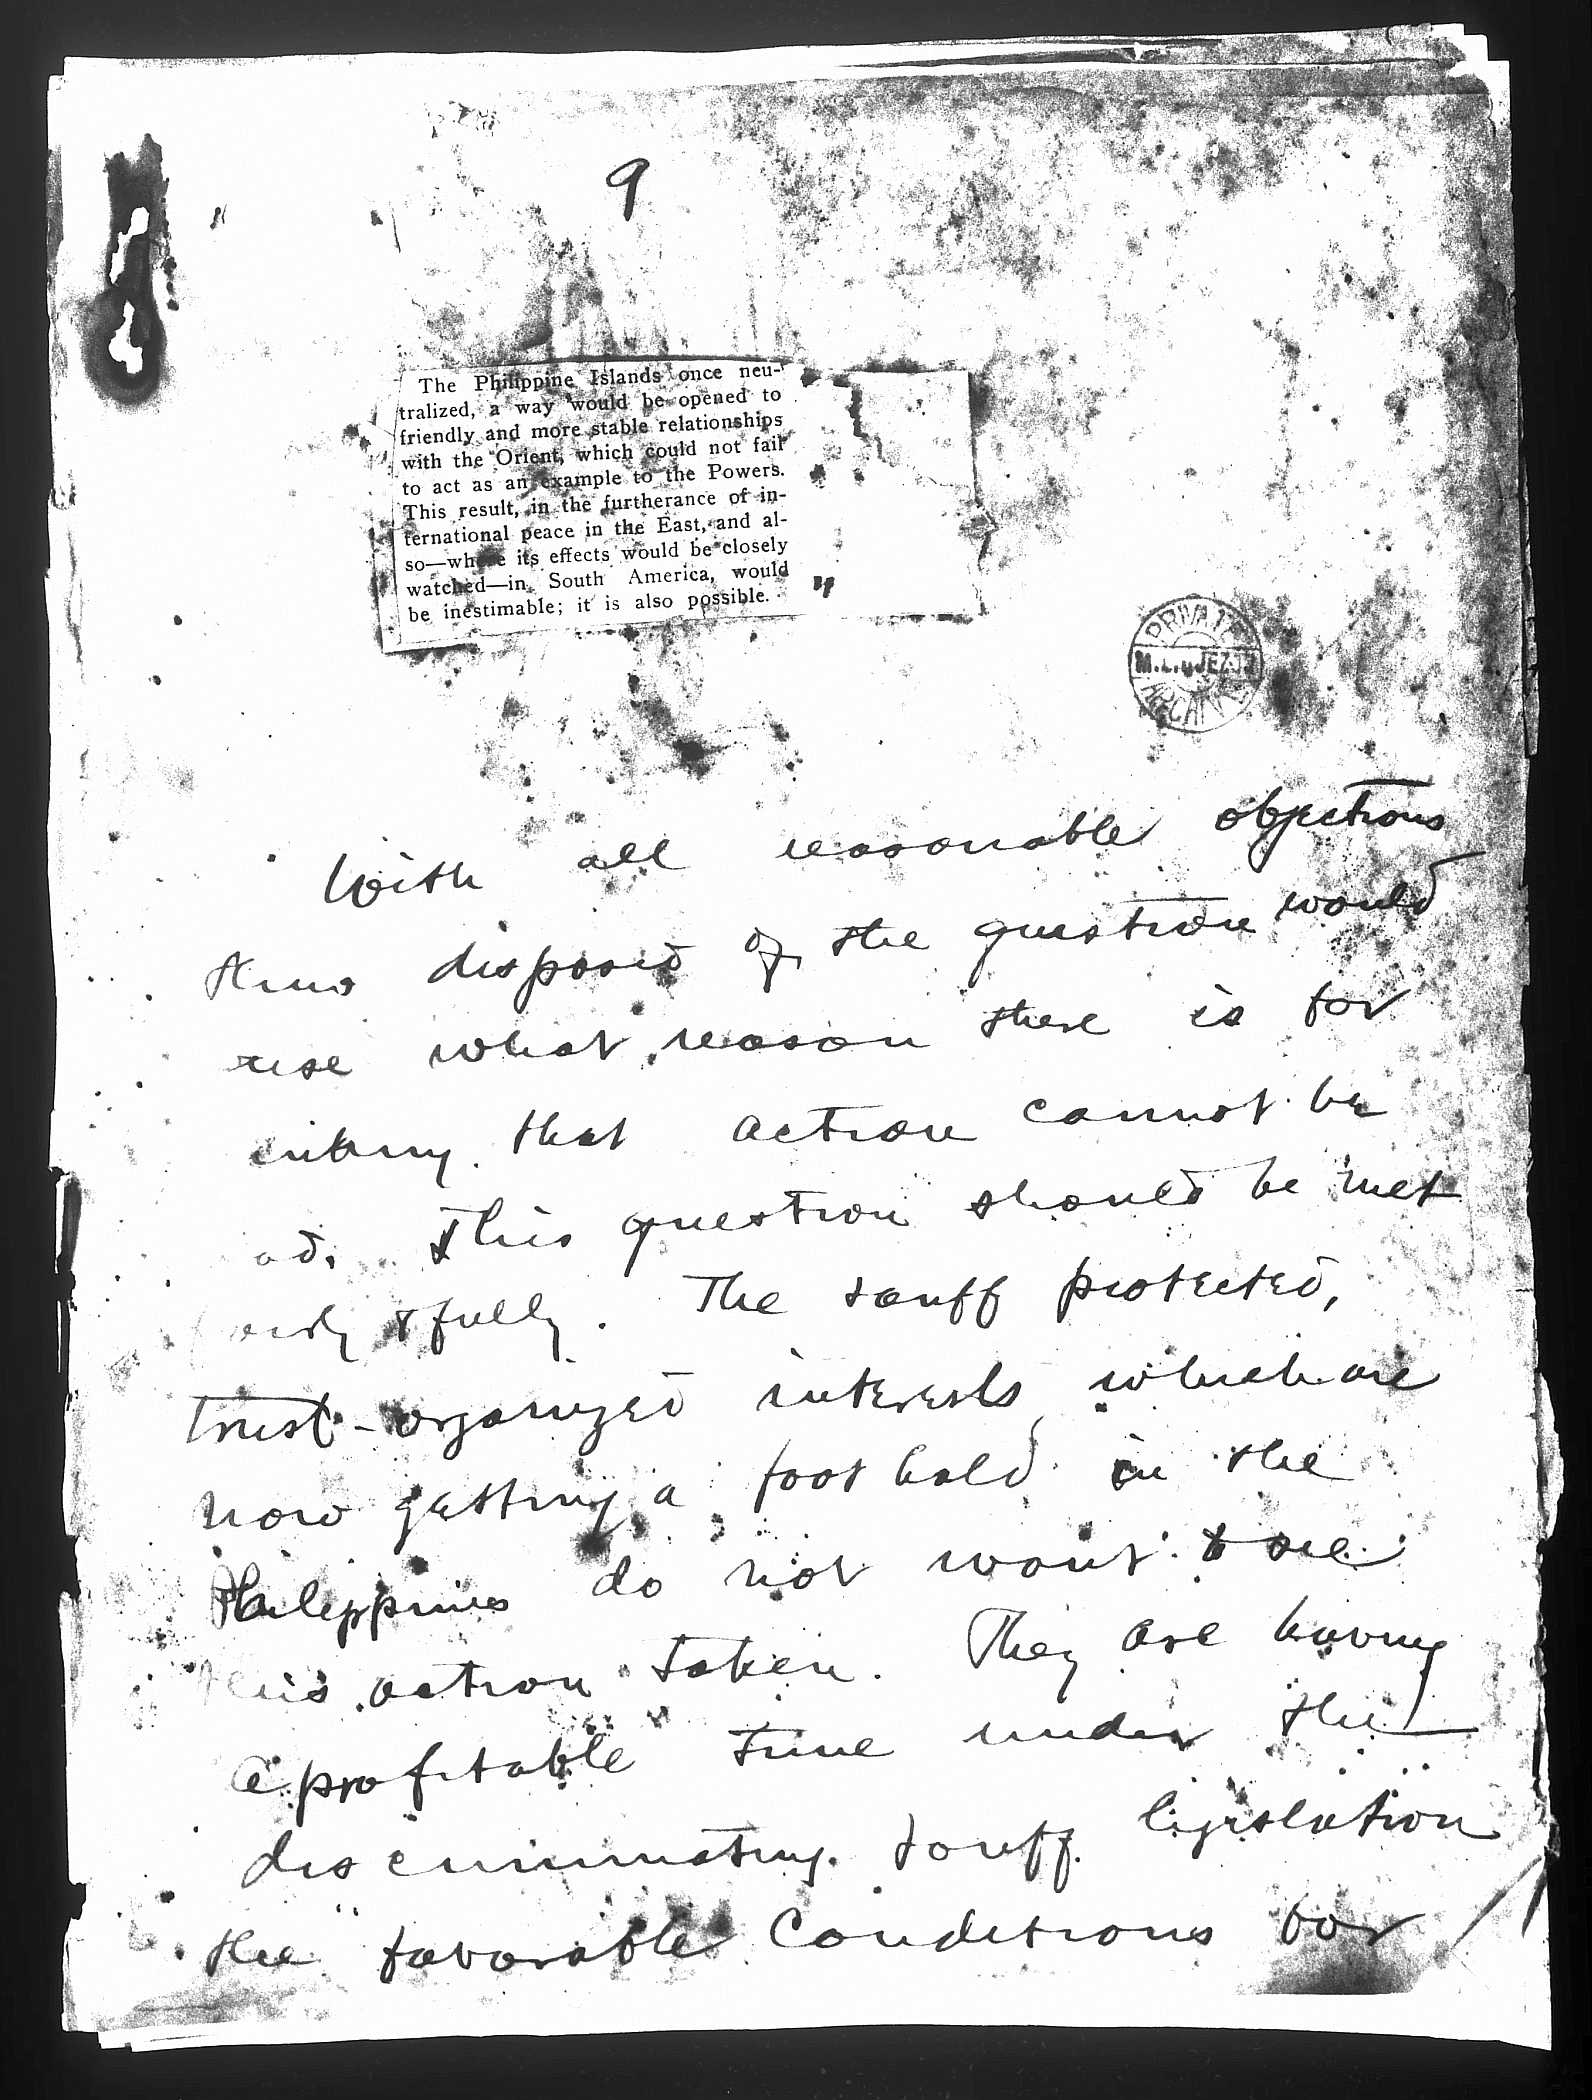 9
The Philippine Islands once neu-
tralized, a way would be opened to
friendly and more stable relationships
with the Orient, which could not fail
to act as an example to the Powers.
This result, in the furtherance of in-
ternational peace in the East, and al-
so—where its effects would be closely
watched—in South America, would
be inestimable; it is also possible.
PRIVATE
M.L.QUEZON
ARCHIVES
With all reasonable objections
thus disposed of, the question would
rise what reason there is for
that action cannot be
This question should be met
& fully. The tariff protected,
trust-organized interests, which are
now getting a foot hold in the
Philippines do not want to see
this action taken. They are having
a profitable time under the
discriminating tariff legislation
the "favorable conditions for